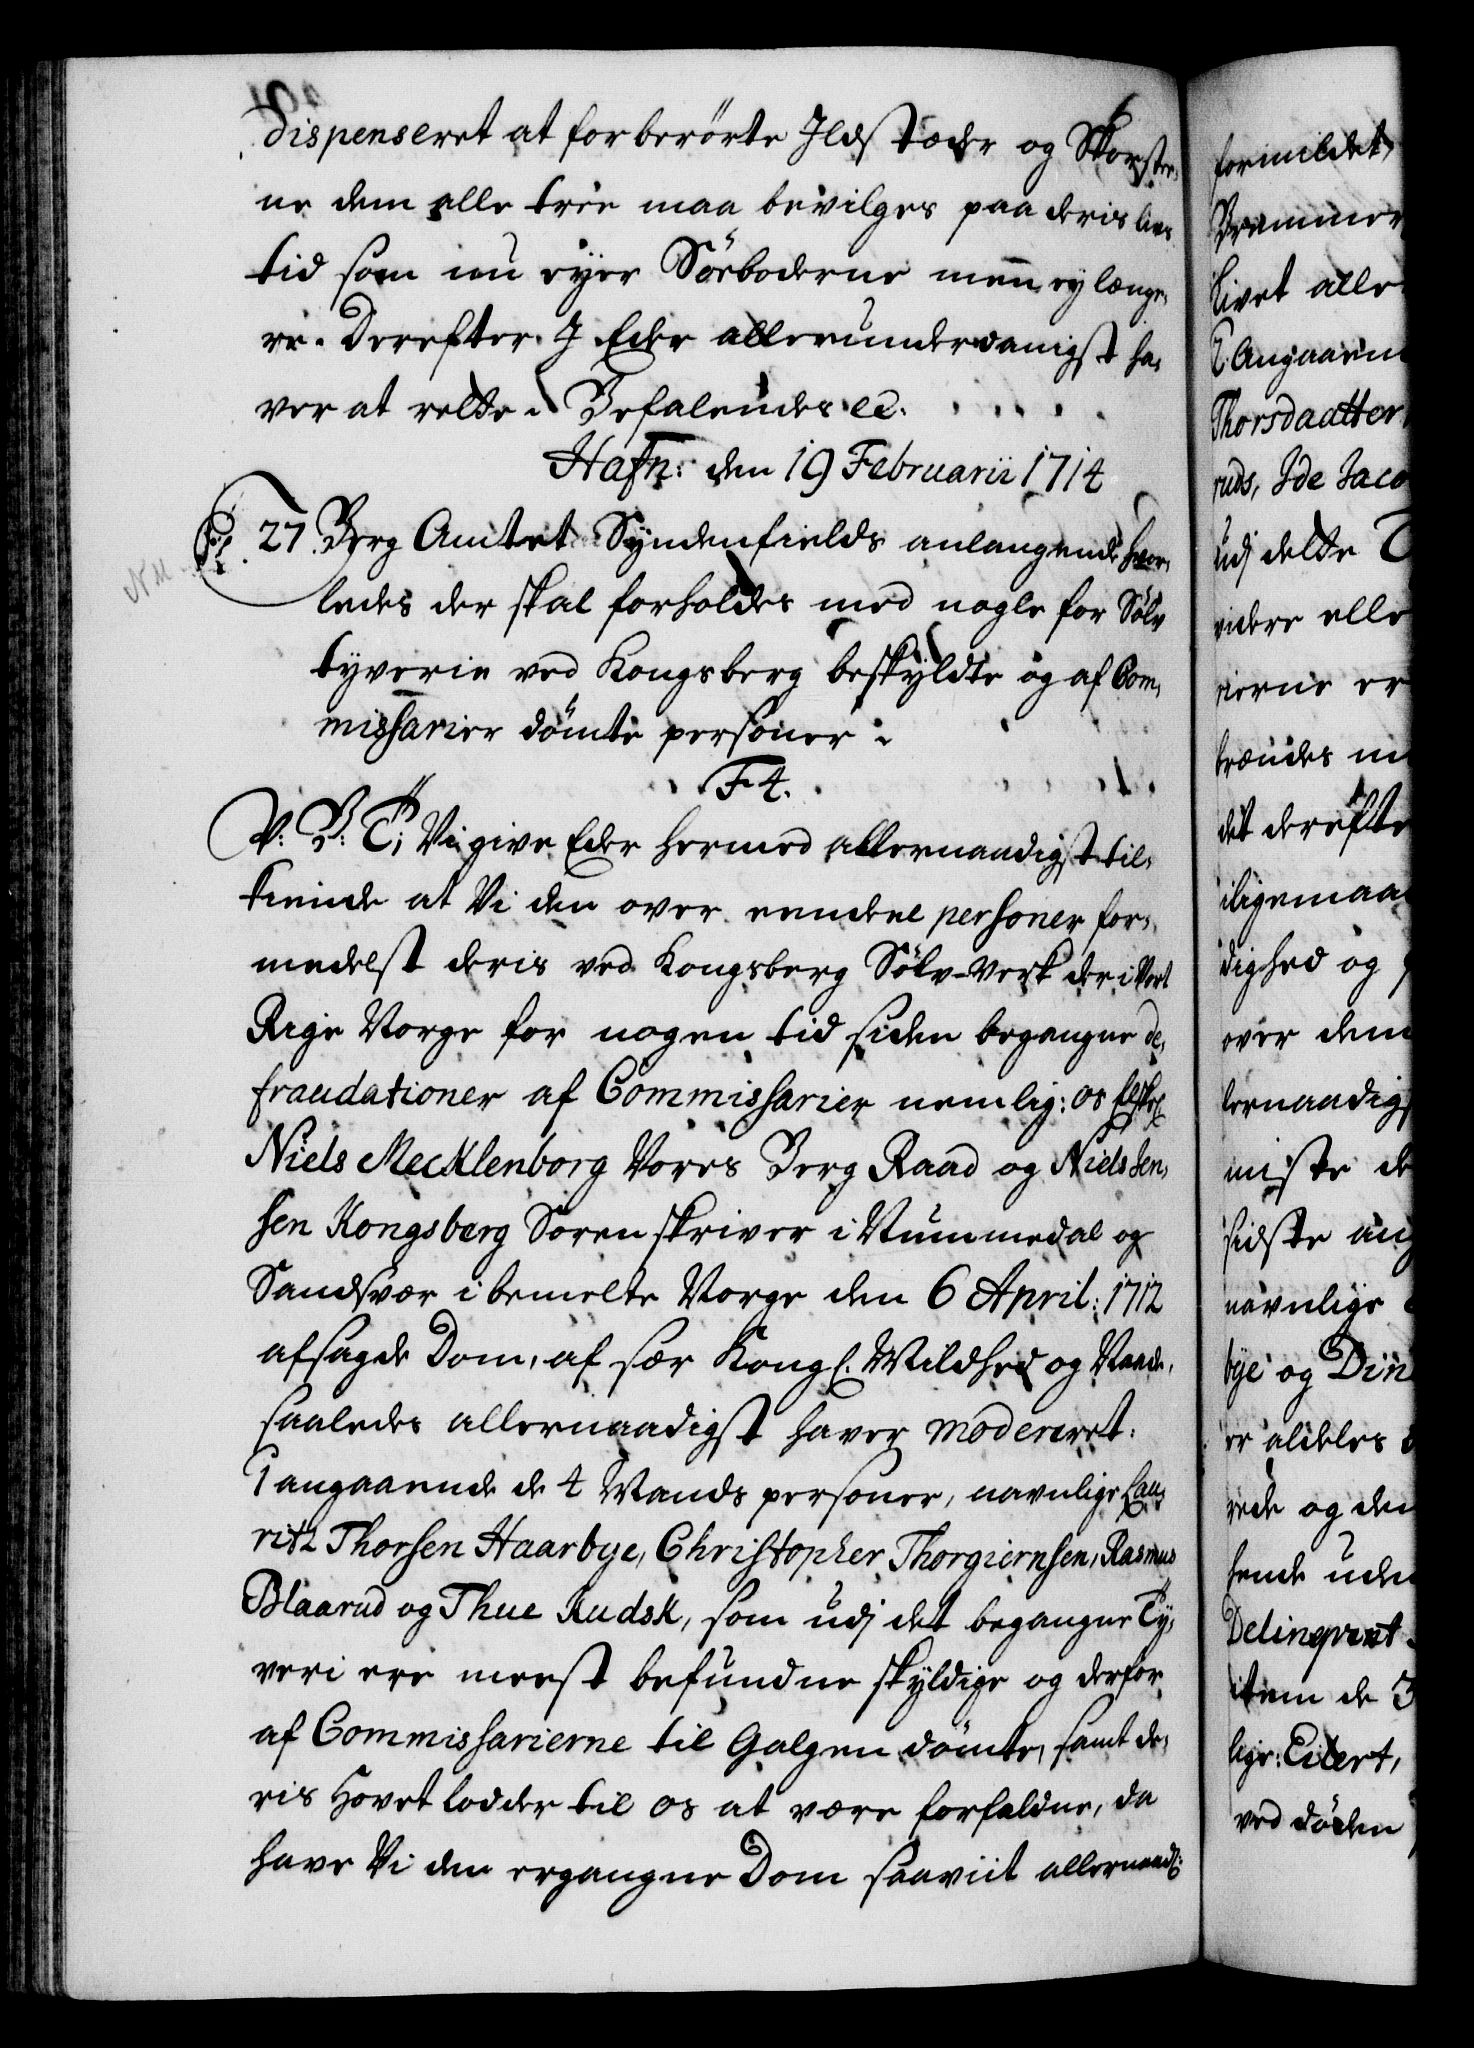 dispenseret at forberörte Ildstæder og Skorstee,
ne dem alle tree maa bevilges paa deris lives
tid som nu eyer Söeboderne menn ey længe,
re. Derefter I Eder allerunderdanigst ha,
ver at rette. Befalendes ec.
Hafn: den 19 Februarii 1714
27. Berg Amtet Syndenfields anlangende hvor,
ledes der skal forholdes med nogle for Sölv
tyverie ved Kongsberg beskyldte og af Com,
missarier dömte personer.
F4.
V: B: T; Vi give Eder hermed allernaadigst til,
kiende at Vi den over eendeel personer for,
medelst deris ved Kongsberg Sölv-Verk der i Vort
Rige Norge for nogen tid siden begangne de,
fraudationer af Commissarier nemlig: os Elskel
Niels Mecklenborg Vores Berg Raad og Niels Jen,
sen Kongsberg Sorenskriver i Nummedal og
Sandsvær i bemelte Norge den 6 April: 1712
afsagde Dom, af sær Kongl. Mildhed og Naade,
saaledes allernaadigst haver modereret.
1 angaaende de 4 Mands personer, navnlige Lau,
ritz Thorsen Haarbye, Christopher Thorgiernsen, Rasmus
Blaarud og Thue Rudsk, som udj det begangne Ty,
veri ere meest befundne skyldige og derfor
af Commissarierne til Galgen dömte, samt de,
ris Hovetlodder til os at være forfaldne, da
have Vi den ergangne Dom saaviit allernaadl:
formildet,
Brammer
Livet alle
2. Angaaen
Thorsdaatter
ruds, Ide Jaco
udj dette T
videre elle
rierne er
brændes m
det derefte
iligemaa
dighed og
over dem
lernaadigs
miste de
sidste ang
navnlige
bye og Din
er aldeles
rede og den
hende uden
Delinqvent
item de 3
lige: Eilert,
ved döden